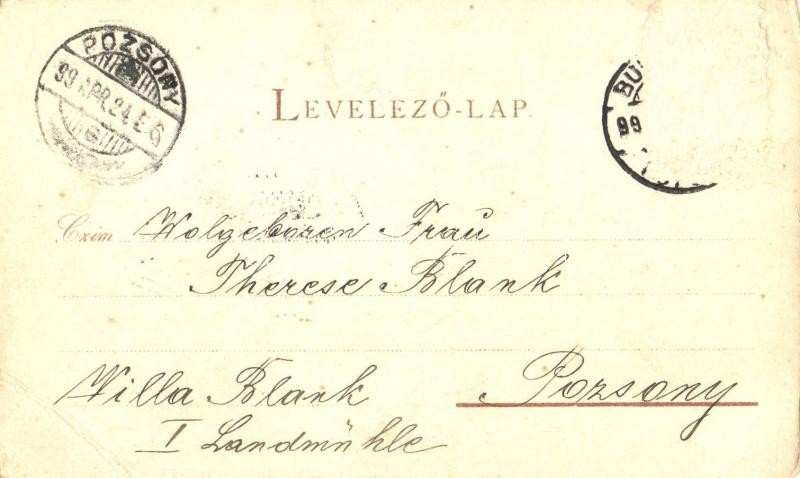 POZSONY
99 APR. 24 É 6
BU
99
LEVELEZŐ-LAP.
Czim Wolgeboren Frau
Therese Blank
Willa Blank Pozsony
I Landmühle